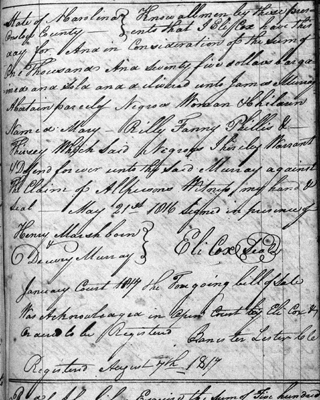 State of N Carolina } Know all men by these pres-
Onslow County } ents that I Eli Cox have this
day for And in Consideration of the sum of
One Thousand And seventy five dollars barga
ined and sold and delivered unto James Murray
A Certain parcely Negroes Woman & Children
Named Mary - Killy Fanny Phillis &
Kissey Which said Negroes I hereby Warrant
& Defend forever unto the said Murray against
the Claim of All persons Witness my hand &
seal May 21st 1816 signed in presence of
Henry Marshborn }
& Dewry Murray } Eli Cox Seal
January Court 1817 the Foregoing bill of Sale
Was Acknowledged in Open Court by Eli Cox &
Ordered to be Registered Lister Clk
Registered August 7th 1817
the sum of Five hundred